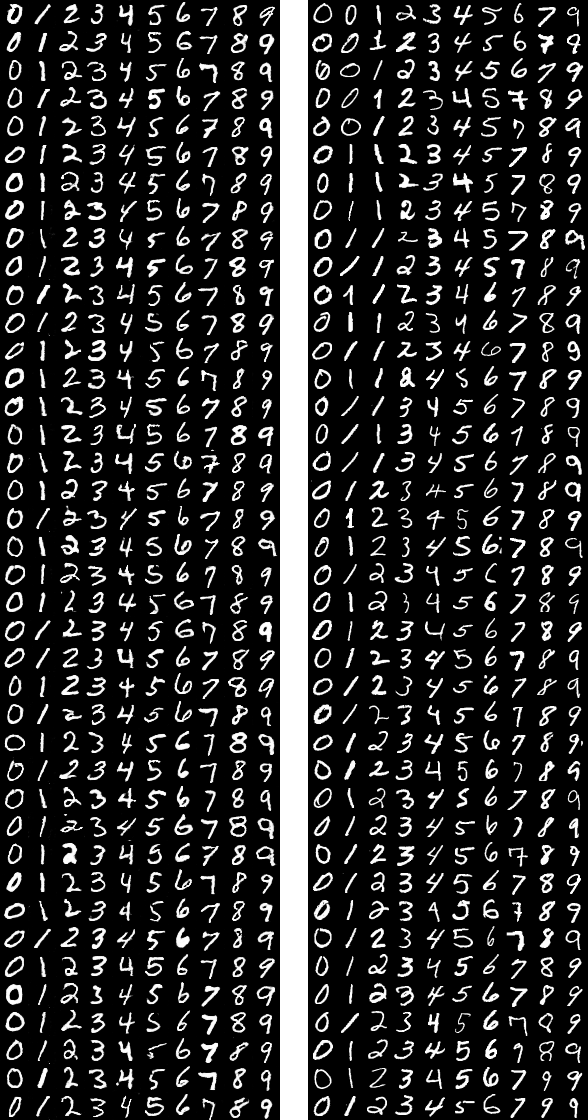 0 1 2 3 4 5 6 7 8 9 0 0 1 2 3 4 5 6 7 9
0 1 2 3 4 5 6 7 8 9 0 0 1 2 3 4 5 6 7 9
0 1 2 3 4 5 6 7 8 9 0 0 1 2 3 4 5 6 7 9
0 1 2 3 4 5 6 7 8 9 0 0 1 2 3 4 5 7 8 9
0 1 2 3 4 5 6 7 8 9 0 0 1 2 3 4 5 7 8 9
0 1 2 3 4 5 6 7 8 9 0 1 1 2 3 4 5 7 8 9
0 1 2 3 4 5 6 7 8 9 0 1 1 2 3 4 5 7 8 9
0 1 2 3 4 5 6 7 8 9 0 1 1 2 3 4 5 7 8 9
0 1 2 3 4 5 6 7 8 9 0 1 1 2 3 4 5 7 8 9
0 1 2 3 4 5 6 7 8 9 0 1 1 2 3 4 5 7 8 9
0 1 2 3 4 5 6 7 8 9 0 1 1 2 3 4 6 7 8 9
0 1 2 3 4 5 6 7 8 9 0 1 1 2 3 4 6 7 8 9
0 1 2 3 4 5 6 7 8 9 0 1 1 2 3 4 6 7 8 9
0 1 2 3 4 5 6 7 8 9 0 1 1 2 4 5 6 7 8 9
0 1 2 3 4 5 6 7 8 9 0 1 1 3 4 5 6 7 8 9
0 1 2 3 4 5 6 7 8 9 0 1 1 3 4 5 6 7 8 9
0 1 2 3 4 5 6 7 8 9 0 1 1 3 4 5 6 7 8 9
0 1 2 3 4 5 6 7 8 9 0 1 2 3 4 5 6 7 8 9
0 1 2 3 4 5 6 7 8 9 0 1 2 3 4 5 6 7 8 9
0 1 2 3 4 5 6 7 8 9 0 1 2 3 4 5 6 7 8 9
0 1 2 3 4 5 6 7 8 9 0 1 2 3 4 5 6 7 8 9
0 1 2 3 4 5 6 7 8 9 0 1 2 3 4 5 6 7 8 9
0 1 2 3 4 5 6 7 8 9 0 1 2 3 4 5 6 7 8 9
0 1 2 3 4 5 6 7 8 9 0 1 2 3 4 5 6 7 8 9
0 1 2 3 4 5 6 7 8 9 0 1 2 3 4 5 6 7 8 9
0 1 2 3 4 5 6 7 8 9 0 1 2 3 4 5 6 7 8 9
0 1 2 3 4 5 6 7 8 9 0 1 2 3 4 5 6 7 8 9
0 1 2 3 4 5 6 7 8 9 0 1 2 3 4 5 6 7 8 9
0 1 2 3 4 5 6 7 8 9 0 1 2 3 4 5 6 7 8 9
0 1 2 3 4 5 6 7 8 9 0 1 2 3 4 5 6 7 8 9
0 1 2 3 4 5 6 7 8 9 0 1 2 3 4 5 6 7 8 9
0 1 2 3 4 5 6 7 8 9 0 1 2 3 4 5 6 7 8 9
0 1 2 3 4 5 6 7 8 9 0 1 2 3 4 5 6 7 8 9
0 1 2 3 4 5 6 7 8 9 0 1 2 3 4 5 6 7 8 9
0 1 2 3 4 5 6 7 8 9 0 1 2 3 4 5 6 7 8 9
0 1 2 3 4 5 6 7 8 9 0 1 2 3 4 5 6 7 8 9
0 1 2 3 4 5 6 7 8 9 0 1 2 3 4 5 6 7 8 9
0 1 2 3 4 5 6 7 8 9 0 1 2 3 4 5 6 7 8 9
0 1 2 3 4 5 6 7 8 9 0 1 2 3 4 5 6 7 9 9
0 1 2 3 4 5 6 7 8 9 0 1 2 3 4 5 6 7 9 9